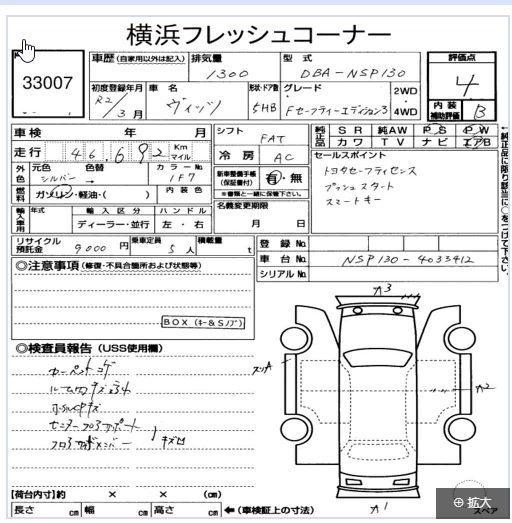 横浜フレッシュコーナー
33007
車歴 (自家用以外は記入) 排気量 型式 評価点
1300 DBA-NSP130 4
初度登録年月 車名 形状・ドア数 グレード 2WD
R2/3月 ヴィッツ 5HB Fセーフティーエディション3 4WD
内装補助評価 B
車検 年 月 シフト FAT 純正品 SR 純AW PS PW
カワ TV ナビ エアB
走行 46,692 Km マイル 冷房 AC セールスポイント
外色 元色 色替 カラーNo 新車整備手帳(保証書付) 有・無 トヨタセーフティセンス
シルバー → 1F7 ※書類と一緒に保管下さい。 プッシュスタート
燃料 ガソリン・軽油・( ) 内装色 名義変更期限 スマートキー
輸入車用 年式 輸入区分 ハンドル 月 日
ディーラー・並行 左・右
リサイクル預託金 9000円 乗車定員 5人 積載量 t 登録No.
車台No. NSP130-4033412
シリアルNo.
◎注意事項 (修復・不具合箇所および状態等)
BOX (キー&Sノブ)
◎検査員報告 (USS使用欄)
カーペットコゲ
A3
A2
A1
キズ凹
【荷台内寸】約 × × (cm)
長さ cm 幅 cm 高さ cm ←(車検証上の寸法) スペア
拡大